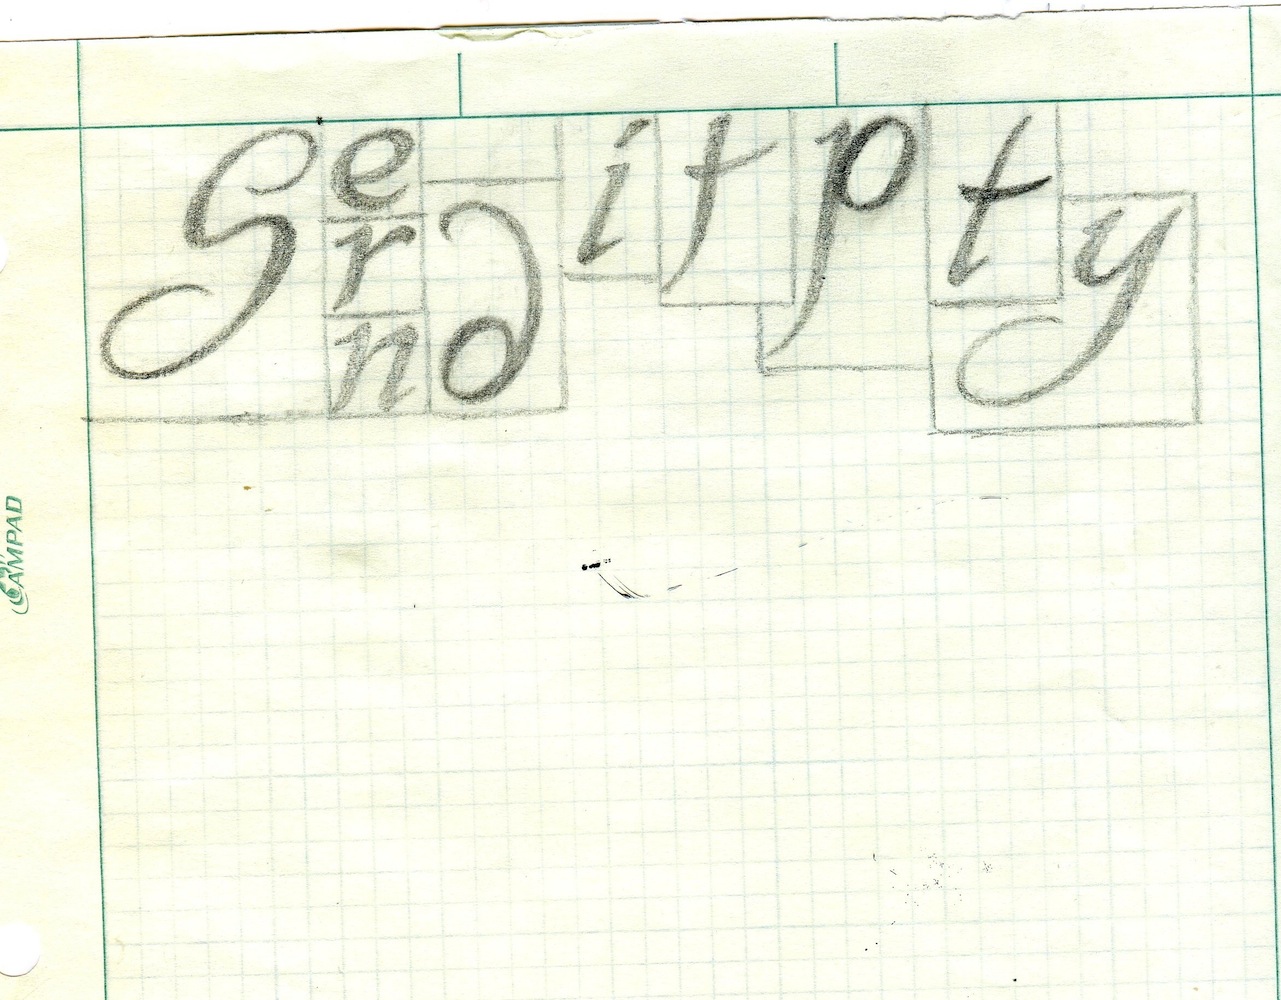 Sernditpty
AMPAD